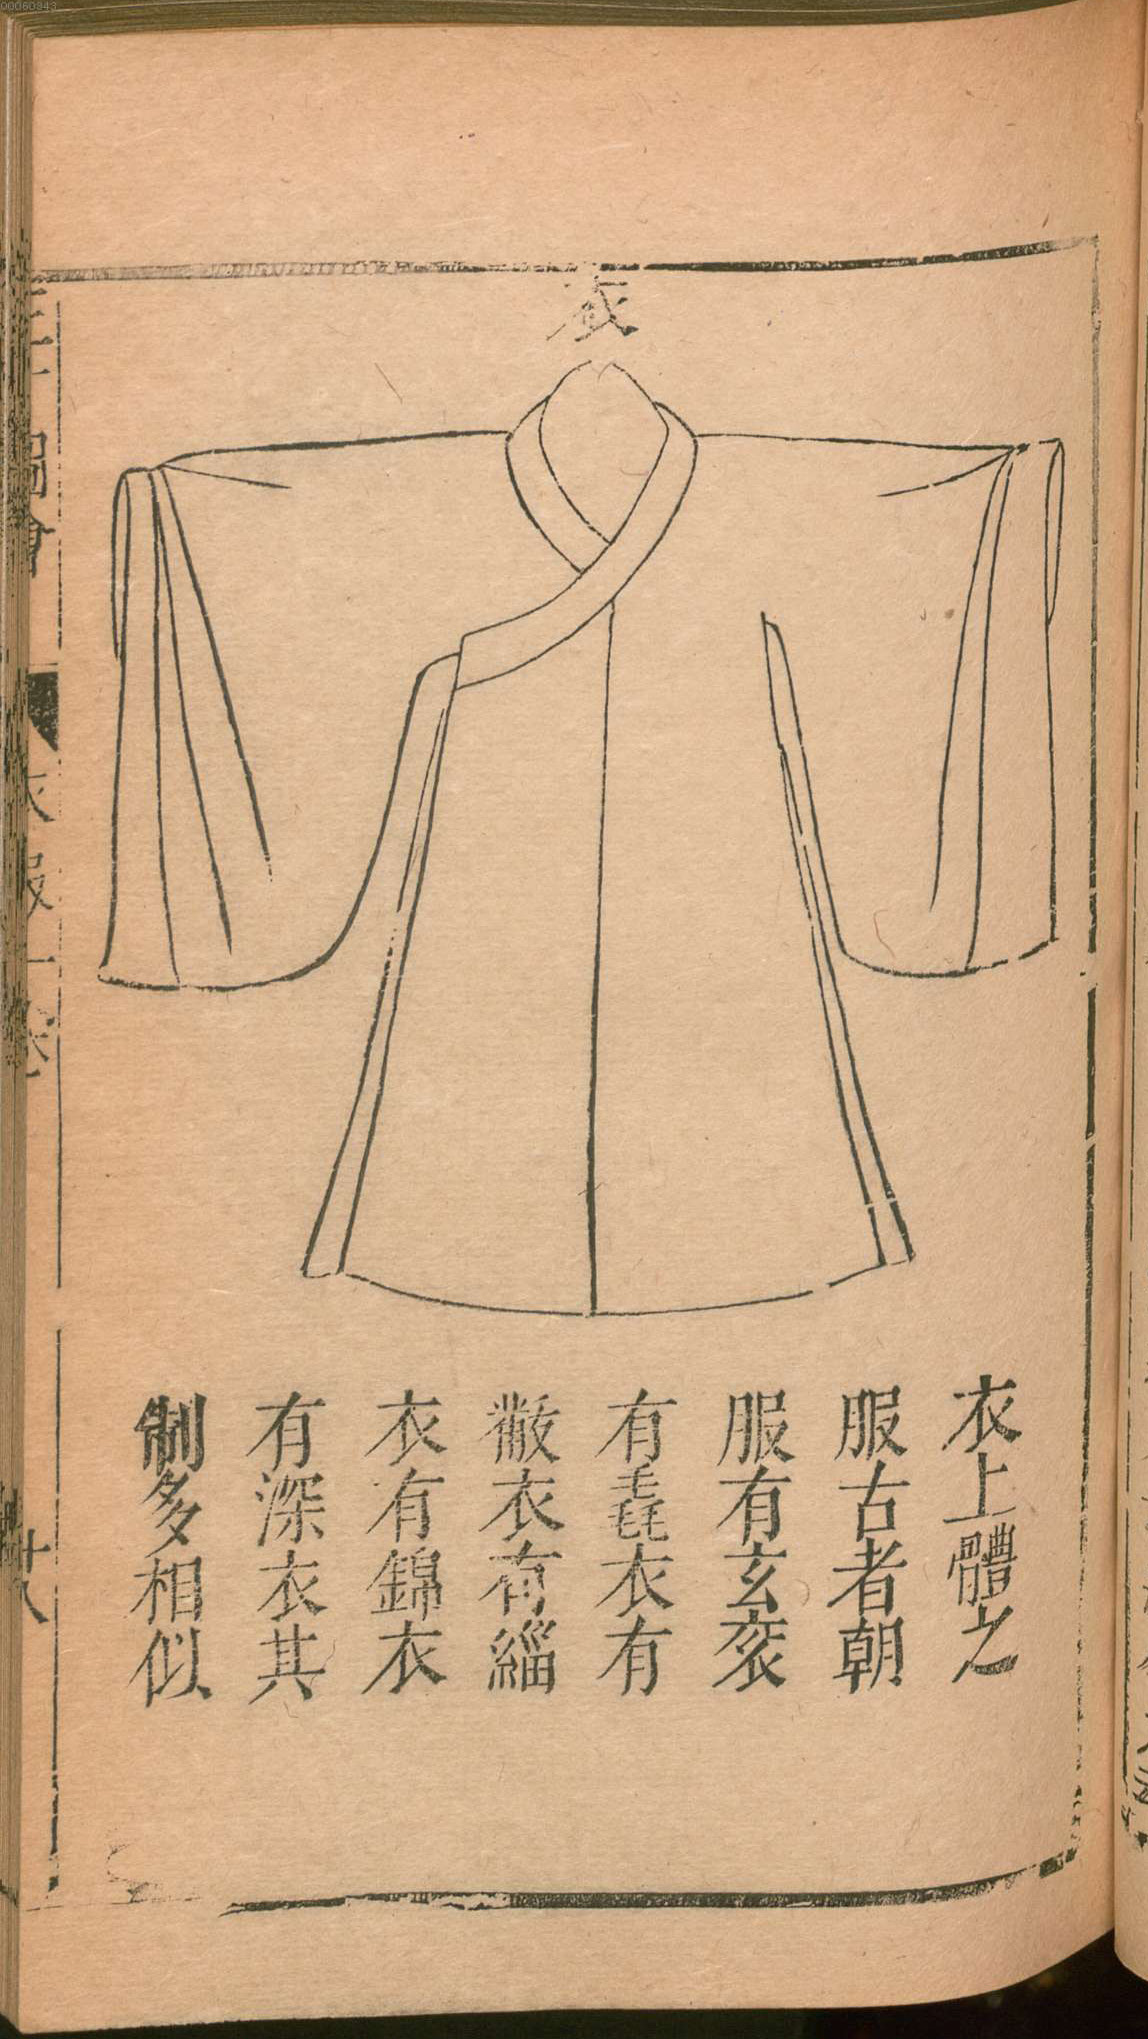 00060843
衣
衣上體之
服古者朝
服有玄衮
有毳衣有
黻衣有緇
衣有錦衣
有深衣其
制多相似
圖會
衣服一卷
廿八